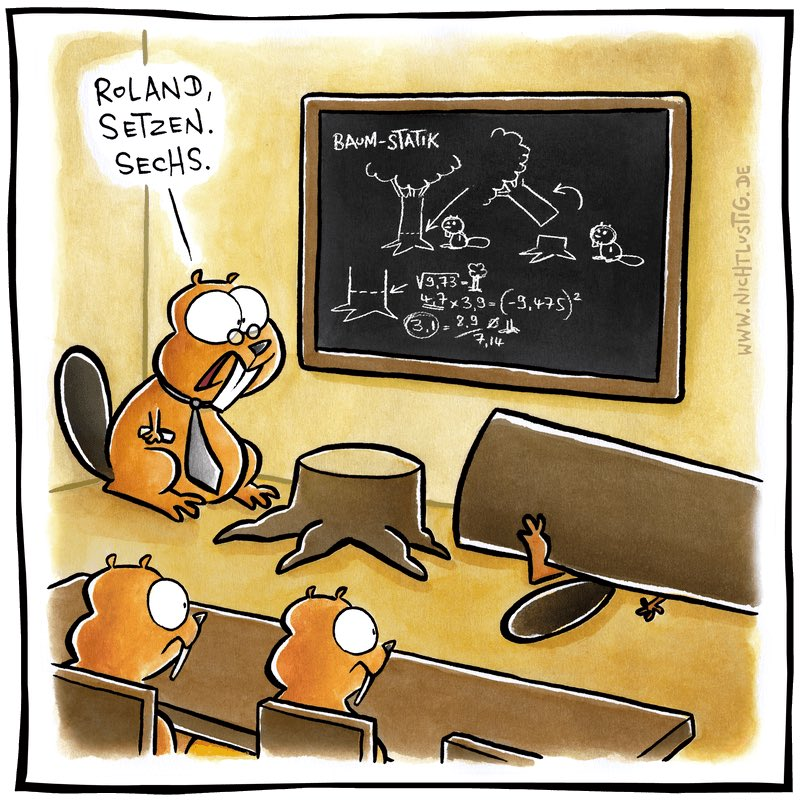 RoLAND,
SETZEN.
SECHS.
BAUM-STATIK
√9,73 -
4,7 × 3,9 = (-9,475)²
3,1 = 8,9 Ø
7,14
WWW.NICHTLUSTIG.DE